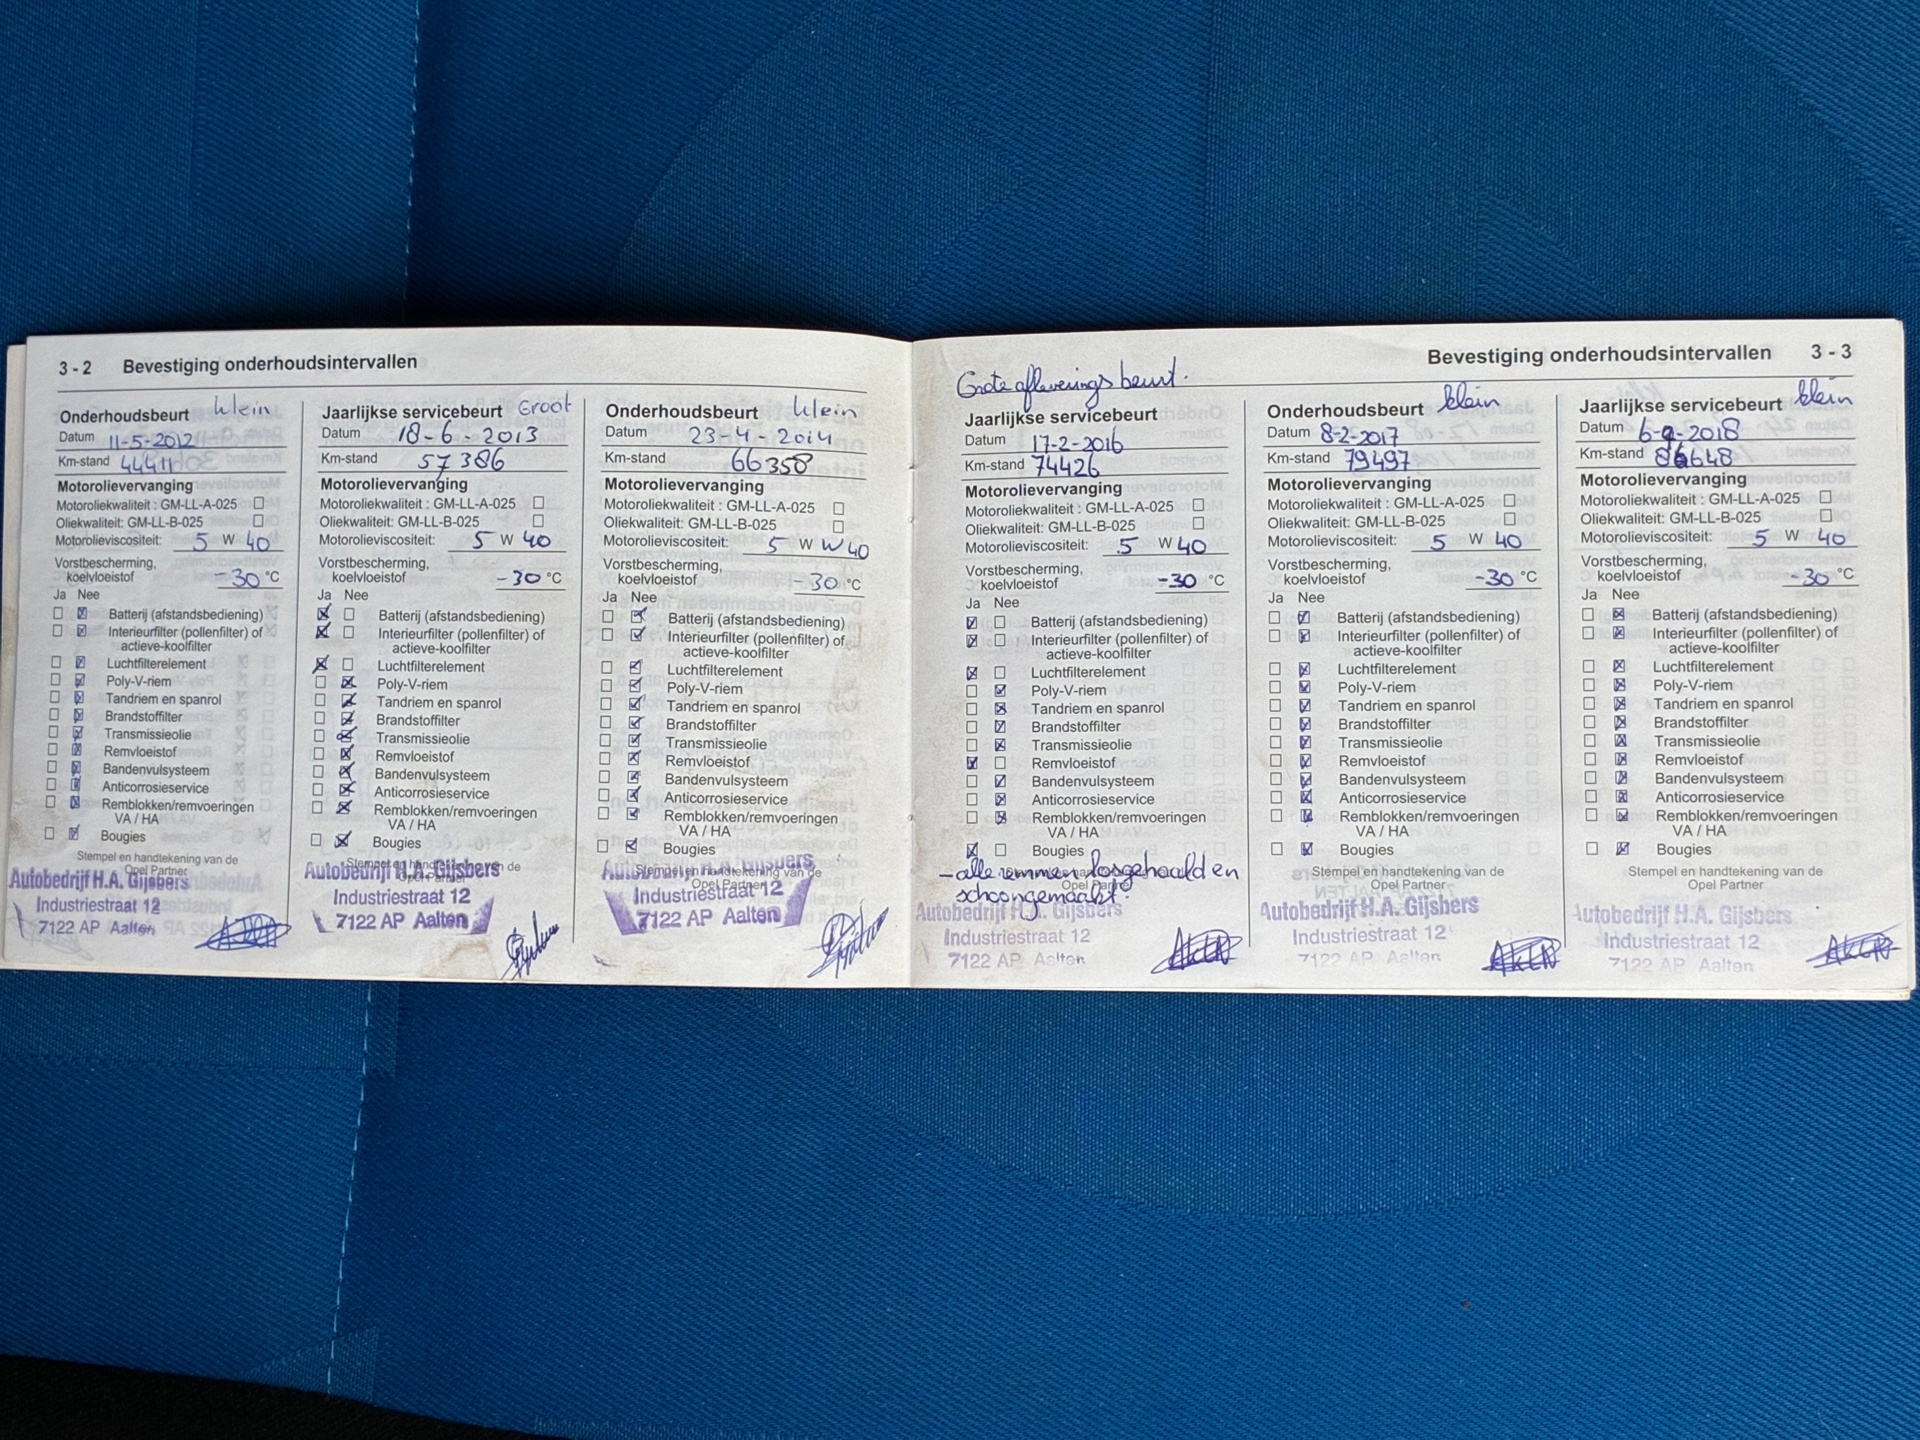 3 - 2 Bevestiging onderhoudsintervallen
Onderhoudsbeurt klein
Datum 11-5-2012
Km-stand 44411
Motorolievervanging
Motoroliekwaliteit : GM-LL-A-025
Oliekwaliteit: GM-LL-B-025
Motorolieviscositeit: 5 W 40
Vorstbescherming,
koelvloeistof -30 °C
Ja Nee
Batterij (afstandsbediening)
Interieurfilter (pollenfilter) of
actieve-koolfilter
Luchtfilterelement
Poly-V-riem
Tandriem en spanrol
Brandstoffilter
Transmissieolie
Remvloeistof
Bandenvulsysteem
Anticorrosieservice
Remblokken/remvoeringen
VA / HA
Bougies
Stempel en handtekening van de
Opel Partner
Autobedrijf H.A. Gijsbers
Industriestraat 12
7122 AP Aalten
Jaarlijkse servicebeurt Groot
Datum 18-6-2013
Km-stand 57386
Motorolievervanging
Motoroliekwaliteit : GM-LL-A-025
Oliekwaliteit: GM-LL-B-025
Motorolieviscositeit: 5 W 40
Vorstbescherming,
koelvloeistof -30 °C
Ja Nee
Batterij (afstandsbediening)
Interieurfilter (pollenfilter) of
actieve-koolfilter
Luchtfilterelement
Poly-V-riem
Tandriem en spanrol
Brandstoffilter
Transmissieolie
Remvloeistof
Bandenvulsysteem
Anticorrosieservice
Remblokken/remvoeringen
VA / HA
Bougies
Stempel en handtekening van de
Opel Partner
Autobedrijf H.A. Gijsbers
Industriestraat 12
7122 AP Aalten
Onderhoudsbeurt klein
Datum 23-4-2014
Km-stand 66358
Motorolievervanging
Motoroliekwaliteit : GM-LL-A-025
Oliekwaliteit: GM-LL-B-025
Motorolieviscositeit: 5 W W40
Vorstbescherming,
koelvloeistof -30 °C
Ja Nee
Batterij (afstandsbediening)
Interieurfilter (pollenfilter) of
actieve-koolfilter
Luchtfilterelement
Poly-V-riem
Tandriem en spanrol
Brandstoffilter
Transmissieolie
Remvloeistof
Bandenvulsysteem
Anticorrosieservice
Remblokken/remvoeringen
VA / HA
Bougies
Stempel en handtekening van de
Opel Partner
Autobedrijf H.A. Gijsbers
Industriestraat 12
7122 AP Aalten
Bevestiging onderhoudsintervallen 3 - 3
Grote afleverings beurt.
Jaarlijkse servicebeurt
Datum 17-2-2016
Km-stand 74426
Motorolievervanging
Motoroliekwaliteit : GM-LL-A-025
Oliekwaliteit: GM-LL-B-025
Motorolieviscositeit: 5 W 40
Vorstbescherming,
koelvloeistof -30 °C
Ja Nee
Batterij (afstandsbediening)
Interieurfilter (pollenfilter) of
actieve-koolfilter
Luchtfilterelement
Poly-V-riem
Tandriem en spanrol
Brandstoffilter
Transmissieolie
Remvloeistof
Bandenvulsysteem
Anticorrosieservice
Remblokken/remvoeringen
VA / HA
Bougies
- alle remmen losgehaald en
schoongemaakt.
Opel Partner
Autobedrijf H.A. Gijsbers
Industriestraat 12
7122 AP Aalten
Onderhoudsbeurt klein
Datum 8-2-2017
Km-stand 79497
Motorolievervanging
Motoroliekwaliteit : GM-LL-A-025
Oliekwaliteit: GM-LL-B-025
Motorolieviscositeit: 5 W 40
Vorstbescherming,
koelvloeistof -30 °C
Ja Nee
Batterij (afstandsbediening)
Interieurfilter (pollenfilter) of
actieve-koolfilter
Luchtfilterelement
Poly-V-riem
Tandriem en spanrol
Brandstoffilter
Transmissieolie
Remvloeistof
Bandenvulsysteem
Anticorrosieservice
Remblokken/remvoeringen
VA / HA
Bougies
Stempel en handtekening van de
Opel Partner
Autobedrijf H.A. Gijsbers
Industriestraat 12
7122 AP Aalten
Jaarlijkse servicebeurt klein
Datum 6-9-2018
Km-stand 86648
Motorolievervanging
Motoroliekwaliteit : GM-LL-A-025
Oliekwaliteit: GM-LL-B-025
Motorolieviscositeit: 5 W 40
Vorstbescherming,
koelvloeistof -30 °C
Ja Nee
Batterij (afstandsbediening)
Interieurfilter (pollenfilter) of
actieve-koolfilter
Luchtfilterelement
Poly-V-riem
Tandriem en spanrol
Brandstoffilter
Transmissieolie
Remvloeistof
Bandenvulsysteem
Anticorrosieservice
Remblokken/remvoeringen
VA / HA
Bougies
Stempel en handtekening van de
Opel Partner
Autobedrijf H.A. Gijsbers
Industriestraat 12
7122 AP Aalten